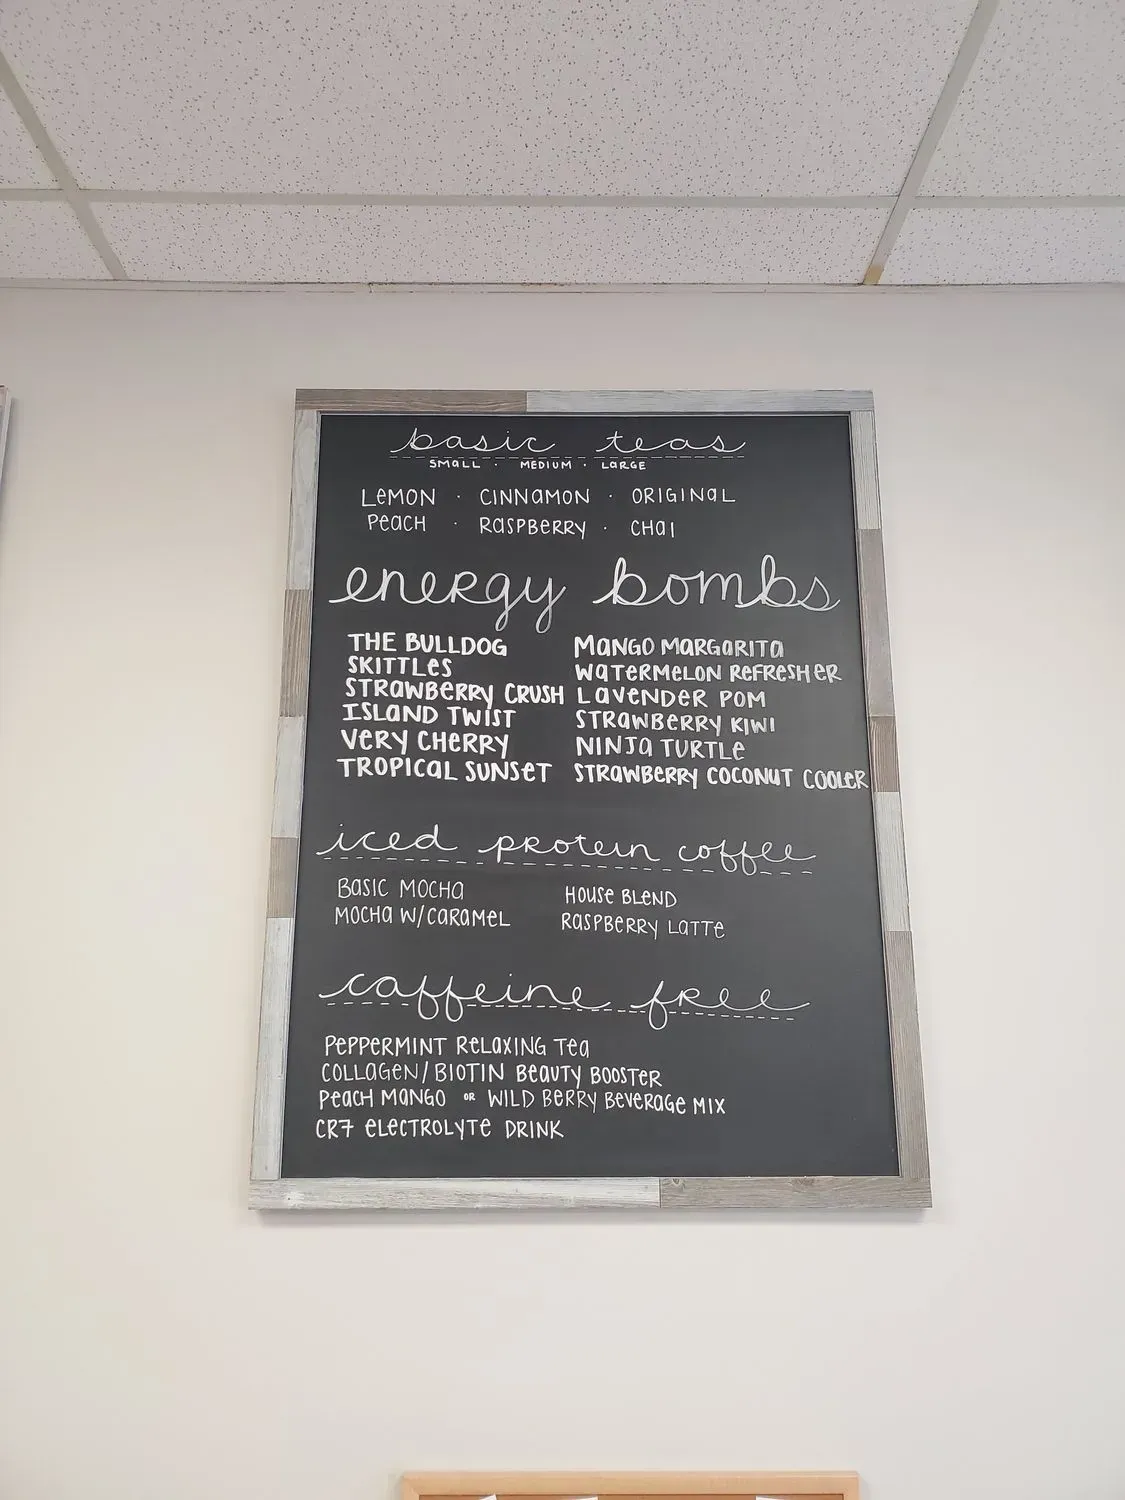 basic teas
SMALL · MEDIUM · LARGE
LEMON · CINNAMON · ORIGINAL
PEACH · RASPBERRY · CHAI
energy bombs
THE BULLDOG
SKITTLES
STRAWBERRY CRUSH
ISLAND TWIST
VERY CHERRY
TROPICAL SUNSET
MANGO MARGARITA
WATERMELON REFRESHER
LAVENDER POM
STRAWBERRY KIWI
NINJA TURTLE
STRAWBERRY COCONUT COOLER
iced protein coffee
BASIC MOCHA
MOCHA W/CARAMEL
HOUSE BLEND
RASPBERRY LATTE
caffeine free
PEPPERMINT RELAXING TEA
COLLAGEN/BIOTIN BEAUTY BOOSTER
PEACH MANGO OR WILD BERRY BEVERAGE MIX
CR7 ELECTROLYTE DRINK